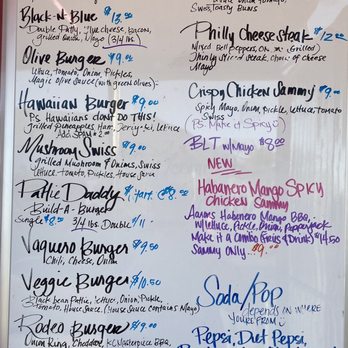 Black-n-Blue $13.50
Double Patty, Blue cheese, bacon,
grilled Onion, Mayo (3/4 lbs)
Olive Burger $9.00
lettuce, Tomato, Onion, Pickles,
Magic Olive Sauce (with green Olives)
Hawaiian Burger $9.00
Ps. Hawaiians don't DO THIS!
Grilled Pineapples, Ham, lettuce
Add Spam $2.00
Mushroom Swiss $9.00
grilled Mushroom & Onions, Swiss
lettuce, Tomato, Pickles, House Sauce
Pattie Daddy Start @ $8.00
Build-A-Burger
Single $8 3/4 lbs Double $11
Vaquero Burger $9.50
Chili, Cheese, Onion
Veggie Burger $10.50
Black bean Pattie, lettuce, Onion, Pickle,
Tomato, House Sauce (House Sauce contains Mayo)
Rodeo Burger $9.00
Onion Ring, Cheddar, KC Masterpiece BBQ,
Swiss, Toasty Buns
Philly Cheese Steak $12.00
Mixed Bell Peppers, Onion (Grilled)
Thinly Sliced Steak, choice of cheese
Mayo
Crispy Chicken Sammy $9.00
Spicy Mayo, Onion, Pickle, lettuce, Tomato
Swiss
(Ps: Make it Spicy)
BLT w/Mayo $8.00
NEW
Habanero Mango Spicy
Chicken Sammy
Aarons Habanero Mango BBQ,
w/lettuce, Pickle, Onion, Pepperjack
Make it a Combo (Fries & Drink) $14.50
Sammy Only... $9.00
Soda/Pop
depends on where
you're from
Pepsi, Diet Pepsi,